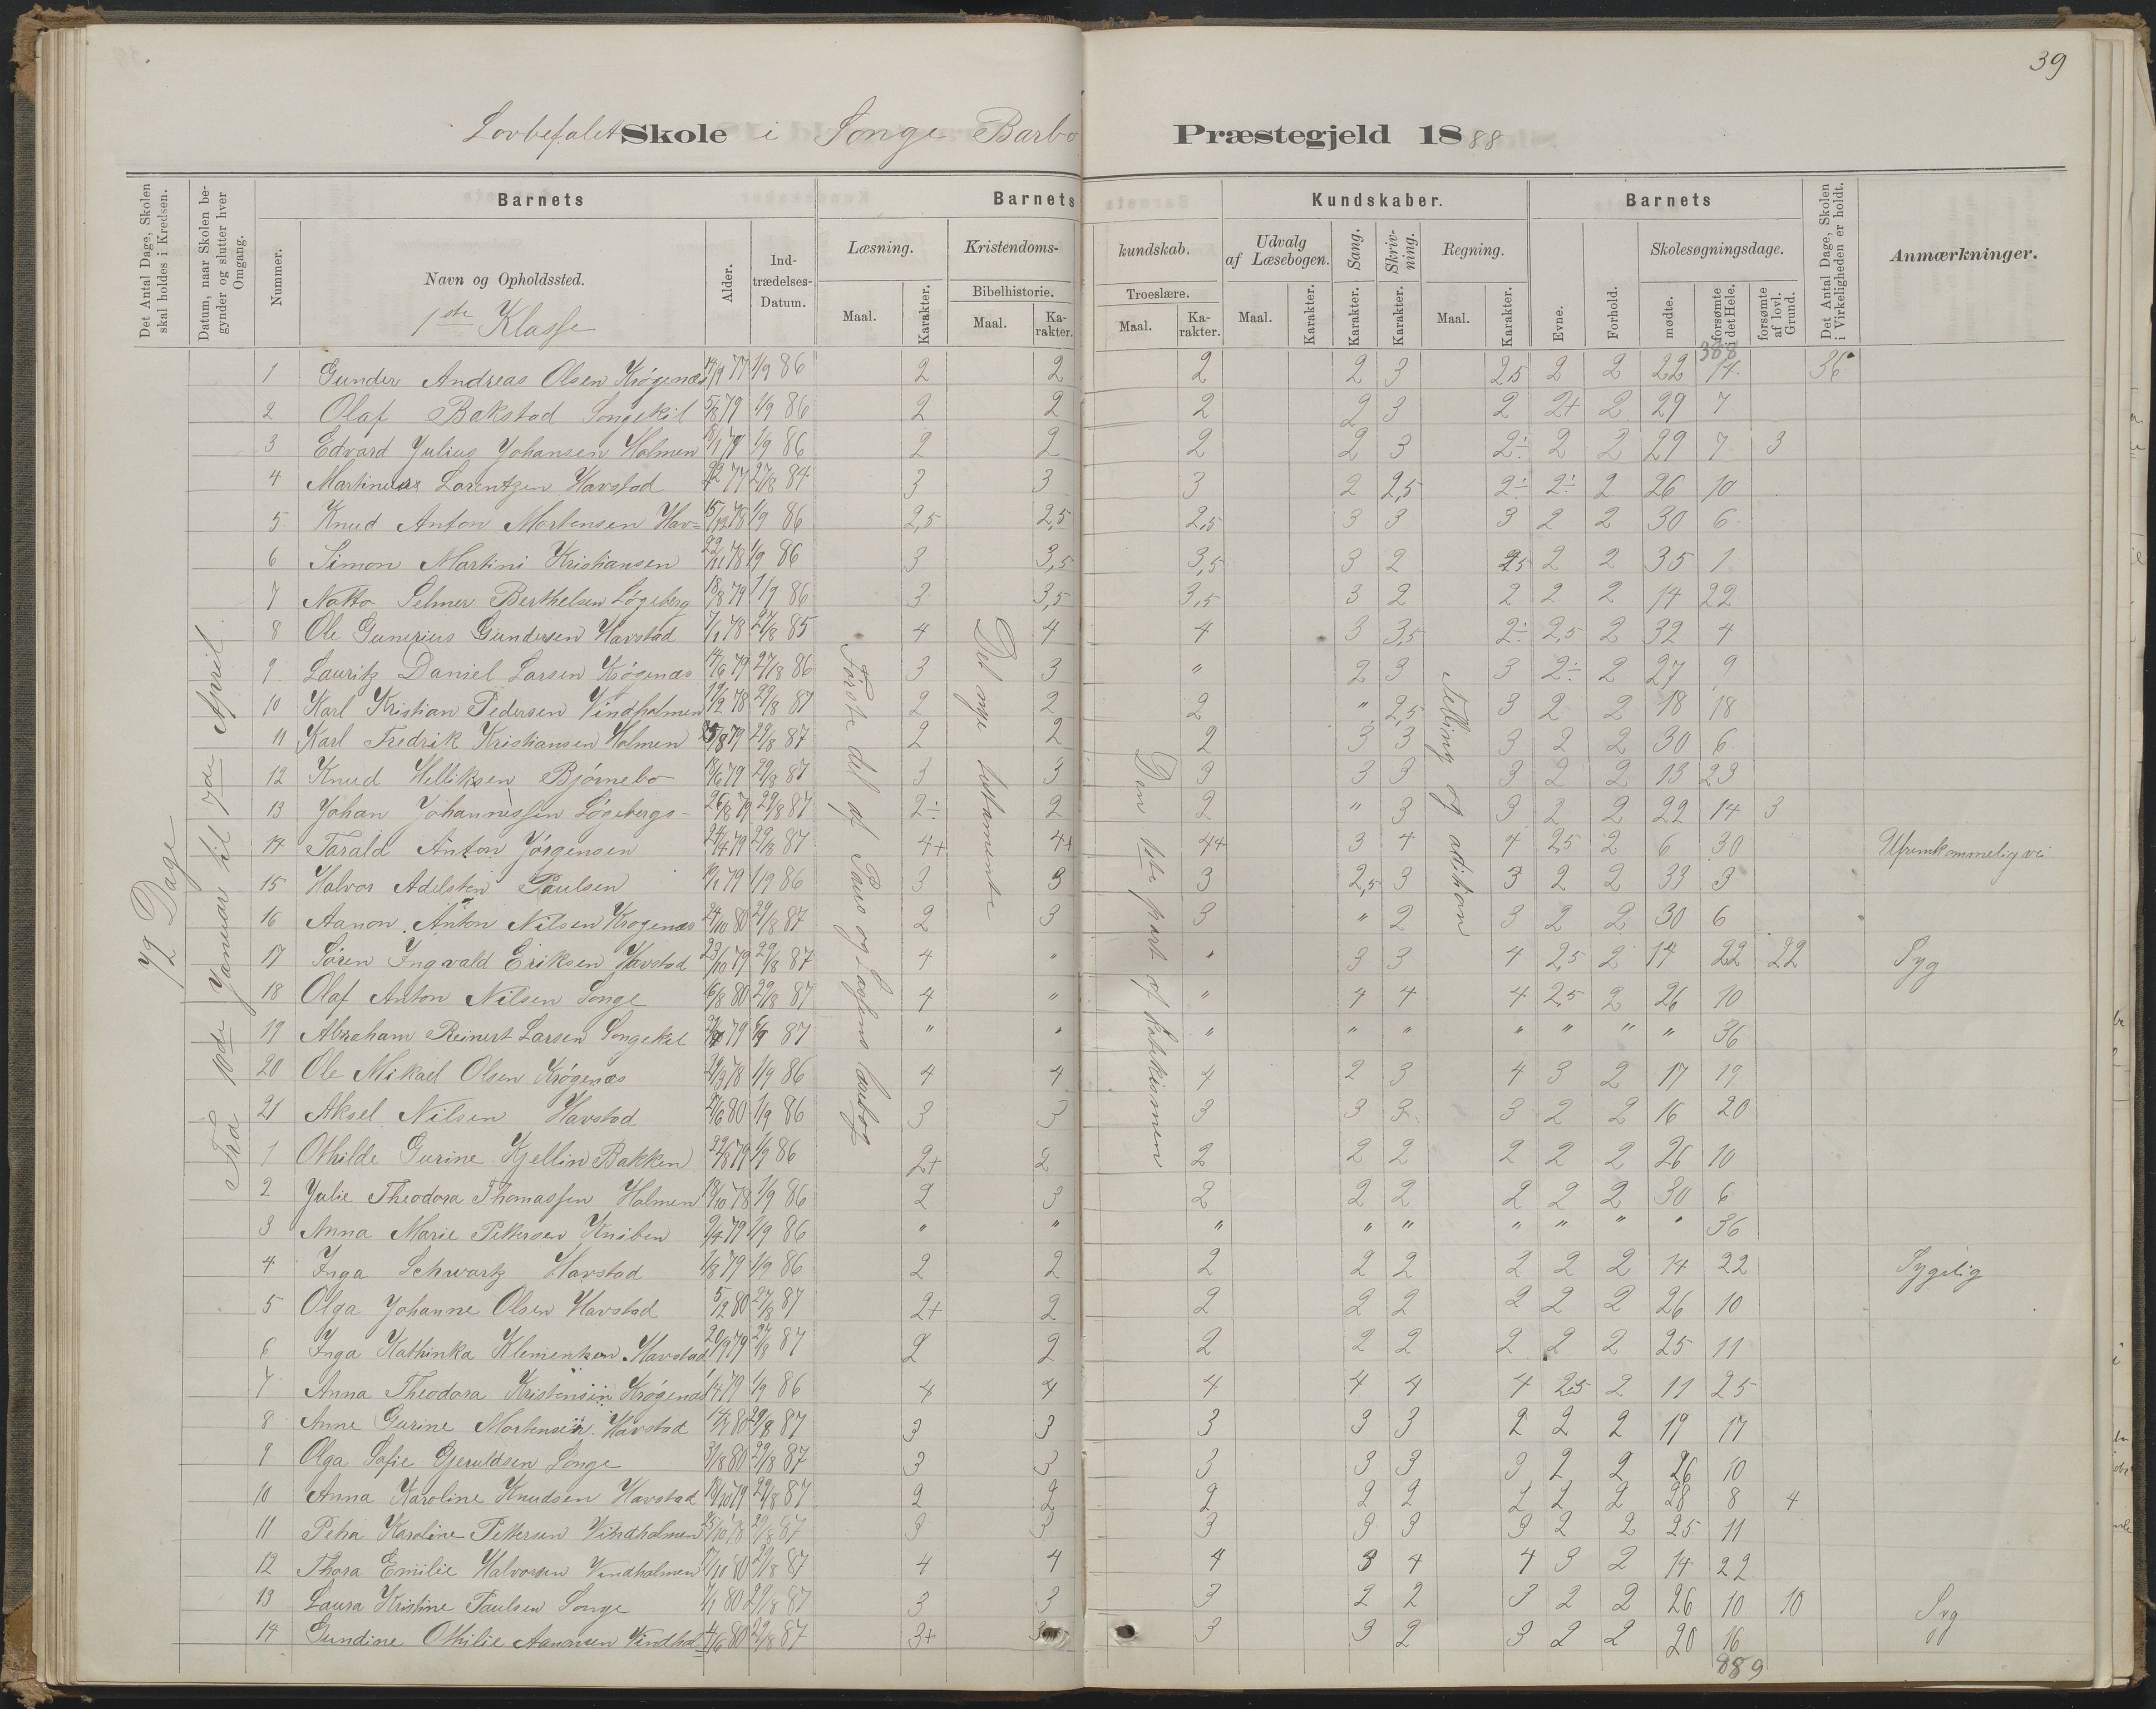 39
Lovbefalet Skole i Songe Barbo Præstegjeld 1888
Det Antal Dage, Skolen skal holdes i Kredsen.
Datum, naar Skolen begynder og slutter hver Omgang.
Barnets
Nummer.
Navn og Opholdssted.
1ste Klasse
Alder.
Indtrædelses-Datum.
Barnets Kundskaber.
Læsning.
Maal.
Karakter.
Kristendomskundskab.
Bibelhistorie.
Maal.
Karakter.
Troeslære.
Maal.
Karakter.
Udvalg af Læsebogen.
Maal.
Karakter.
Sang.
Karakter.
Skrivning.
Karakter.
Regning.
Maal.
Karakter.
Barnets
Evne.
Forhold.
Skolesøgningsdage.
mødte.
forsømte i det Hele.
forsømte af lovl. Grund.
Det Antal Dage, Skolen i Virkeligheden er holdt.
Anmærkninger.
72 Dage
Fra 10de Januar til 7de April
Første del af Paus og Lassens læsebog
Det nye testamente
Den 1ste part af katekismen
Telling og adition
388
1 Gunder Andreas Olsen Krøgenæs 77 1/9 86 2 2 2 2 3 2,5 2 2 22 14 36
2 Olaf Bakstad Songekil 5/8 79 1/9 86 2 2 2 2 3 2 2+ 2 29 7
3 Edvard Julius Johansen Holmen 79 1/9 86 2 2 2 2 3 2÷ 2 2 29 7 3
4 Martinius Lorentzen Havstad 77 27/8 84 3 3 3 2 2,5 2÷ 2÷ 2 26 10
5 Knud Anton Mortensen Hav= 15/12 78 1/9 86 2,5 2,5 2,5 3 3 3 2 2 30 6
6 Simon Martini Kristiansen 22/11 78 1/9 86 3 3,5 3,5 3 2 2,5 2 2 35 1
7 Notto Selmer Berthelsen Løgeberg 18/8 79 1/9 86 3 3,5 3,5 3 2 2 2 2 14 22
8 Ole Gunerius Gundersen Havstad 7/1 78 27/8 85 4 4 4 3 3,5 2÷ 2,5 2 32 4
9 Lauritz Daniel Larsen Krøgenæs 14/6 79 27/8 86 3 3 " 2 3 3 2÷ 2 27 9
10 Karl Kristian Pedersen Vindholmen 78 29/8 87 2 2 2 " 2,5 3 2 2 18 18
11 Karl Fredrik Kristiansen Holmen 79 29/8 87 2 2 2 3 3 3 2 2 30 6
12 Knud Helliksen Bjørnebo 18/6 79 29/8 87 3 3 3 3 3 3 2 2 13 23
13 Johan Johannessen Løgebergs- 26/8 79 29/8 87 2÷ 2 2 " 3 3 2 2 22 14 3
14 Tarald Anton Jørgensen 24/4 79 29/8 87 4+ 4+ 4+ 3 4 4 2,5 2 6 30 Ufremkommelig vei
15 Halvor Adelsten Paulsen 79 1/9 86 3 3 3 2,5 3 3 2 2 33 3
16 Aanon Anton Nilsen Krøgenæs 24/10 80 29/8 87 2 3 3 " 2 3 2 2 30 6
17 Søren Ingvald Eriksen Havstad 23/10 79 29/8 87 4 " " 3 3 4 2,5 2 14 22 22 Syg
18 Olaf Anton Nilsen Songe 6/8 80 29/8 87 4 " " 4 4 4 2,5 2 26 10
19 Abraham Reinert Larsen Songekil 79 87 " " " " " " " " " 36
20 Ole Mikael Olsen Krøgenæs 78 1/9 86 4 4 4 2 3 4 3 2 17 19
21 Aksel Nilsen Havstad 80 1/9 86 3 3 3 3 3 3 2 2 16 20
1 Othilde Gurine Kjellin Bakken 79 1/9 86 2+ 2 2 2 2 2 2 2 26 10
2 Julie Theodora Thomassen Holmen 18/10 78 1/9 86 2 3 2 2 2 2 2 2 30 6
3 Anna Marie Pettersen Kniben 9/4 79 1/9 86 " " " " " " " " " 36
4 Inga Schwartz Havstad 1/8 79 1/9 86 2 2 2 2 2 2 2 2 14 22 Sygelig
5 Olga Johanne Olsen Havstad 5/2 80 27/8 87 2+ 2 2 2 2 2 2 2 26 10
6 Inga Kathinka Klementsen Havstad 20/9 79 87 2 2 2 2 2 2 2 2 25 11
7 Anna Theodora Kristensen Krøgenæs 79 1/9 86 4 4 4 4 4 4 2,5 2 11 25
8 Anne Gurine Mortensen Havstad 80 29/8 87 3 3 3 3 3 2 2 2 19 17
9 Olga Sofie Gjeruldsen Songe 80 29/8 87 3 3 3 3 3 3 2 2 26 10
10 Anna Karoline Knudsen Havstad 18/10 79 29/8 87 2 2 2 2 2 2 2 2 28 8 4
11 Petra Karoline Pettersen Vindholmen 78 29/8 87 3 3 3 3 3 3 2 2 25 11
12 Thora Emilie Halvorsen Vindholmen 80 29/8 87 4 4 4 3 4 4 3 2 14 22
13 Laura Kristine Paulsen Songe 7/1 80 29/8 87 3 3 3 2 2 3 2 2 26 10 10 Syg
14 Gundine Othilie Aanonsen Vindhol= 80 29/8 87 3+ 3 3 3 2 3 2 2 20 16
889